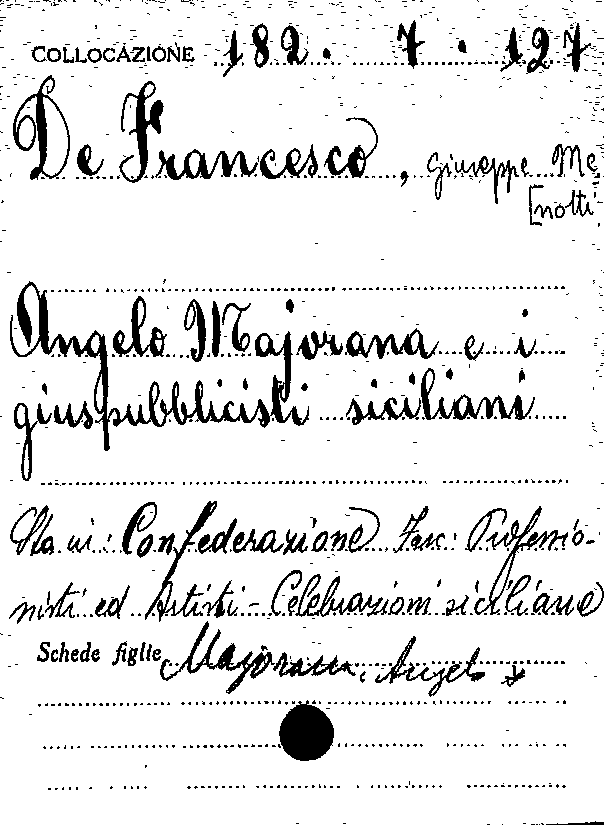 COLLOCAZIONE 182. 7. 127
De Francesco, Giuseppe Me
[notti
Angelo Majorana e i
giuspubblicisti siciliani
Sta in: Confederazione Fasc: Professio-
nisti ed Artisti - Celebrazioni siciliane
Schede figlie Majorana, Angelo